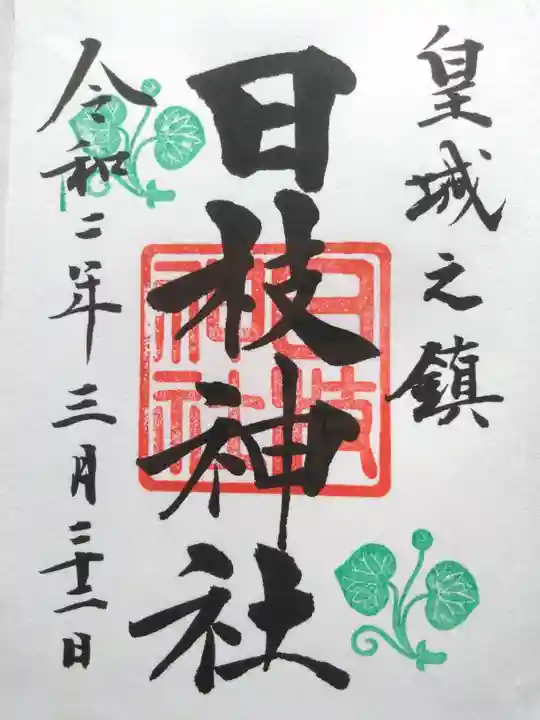 皇城之鎮
日枝神社
日枝神社
令和二年三月二十二日